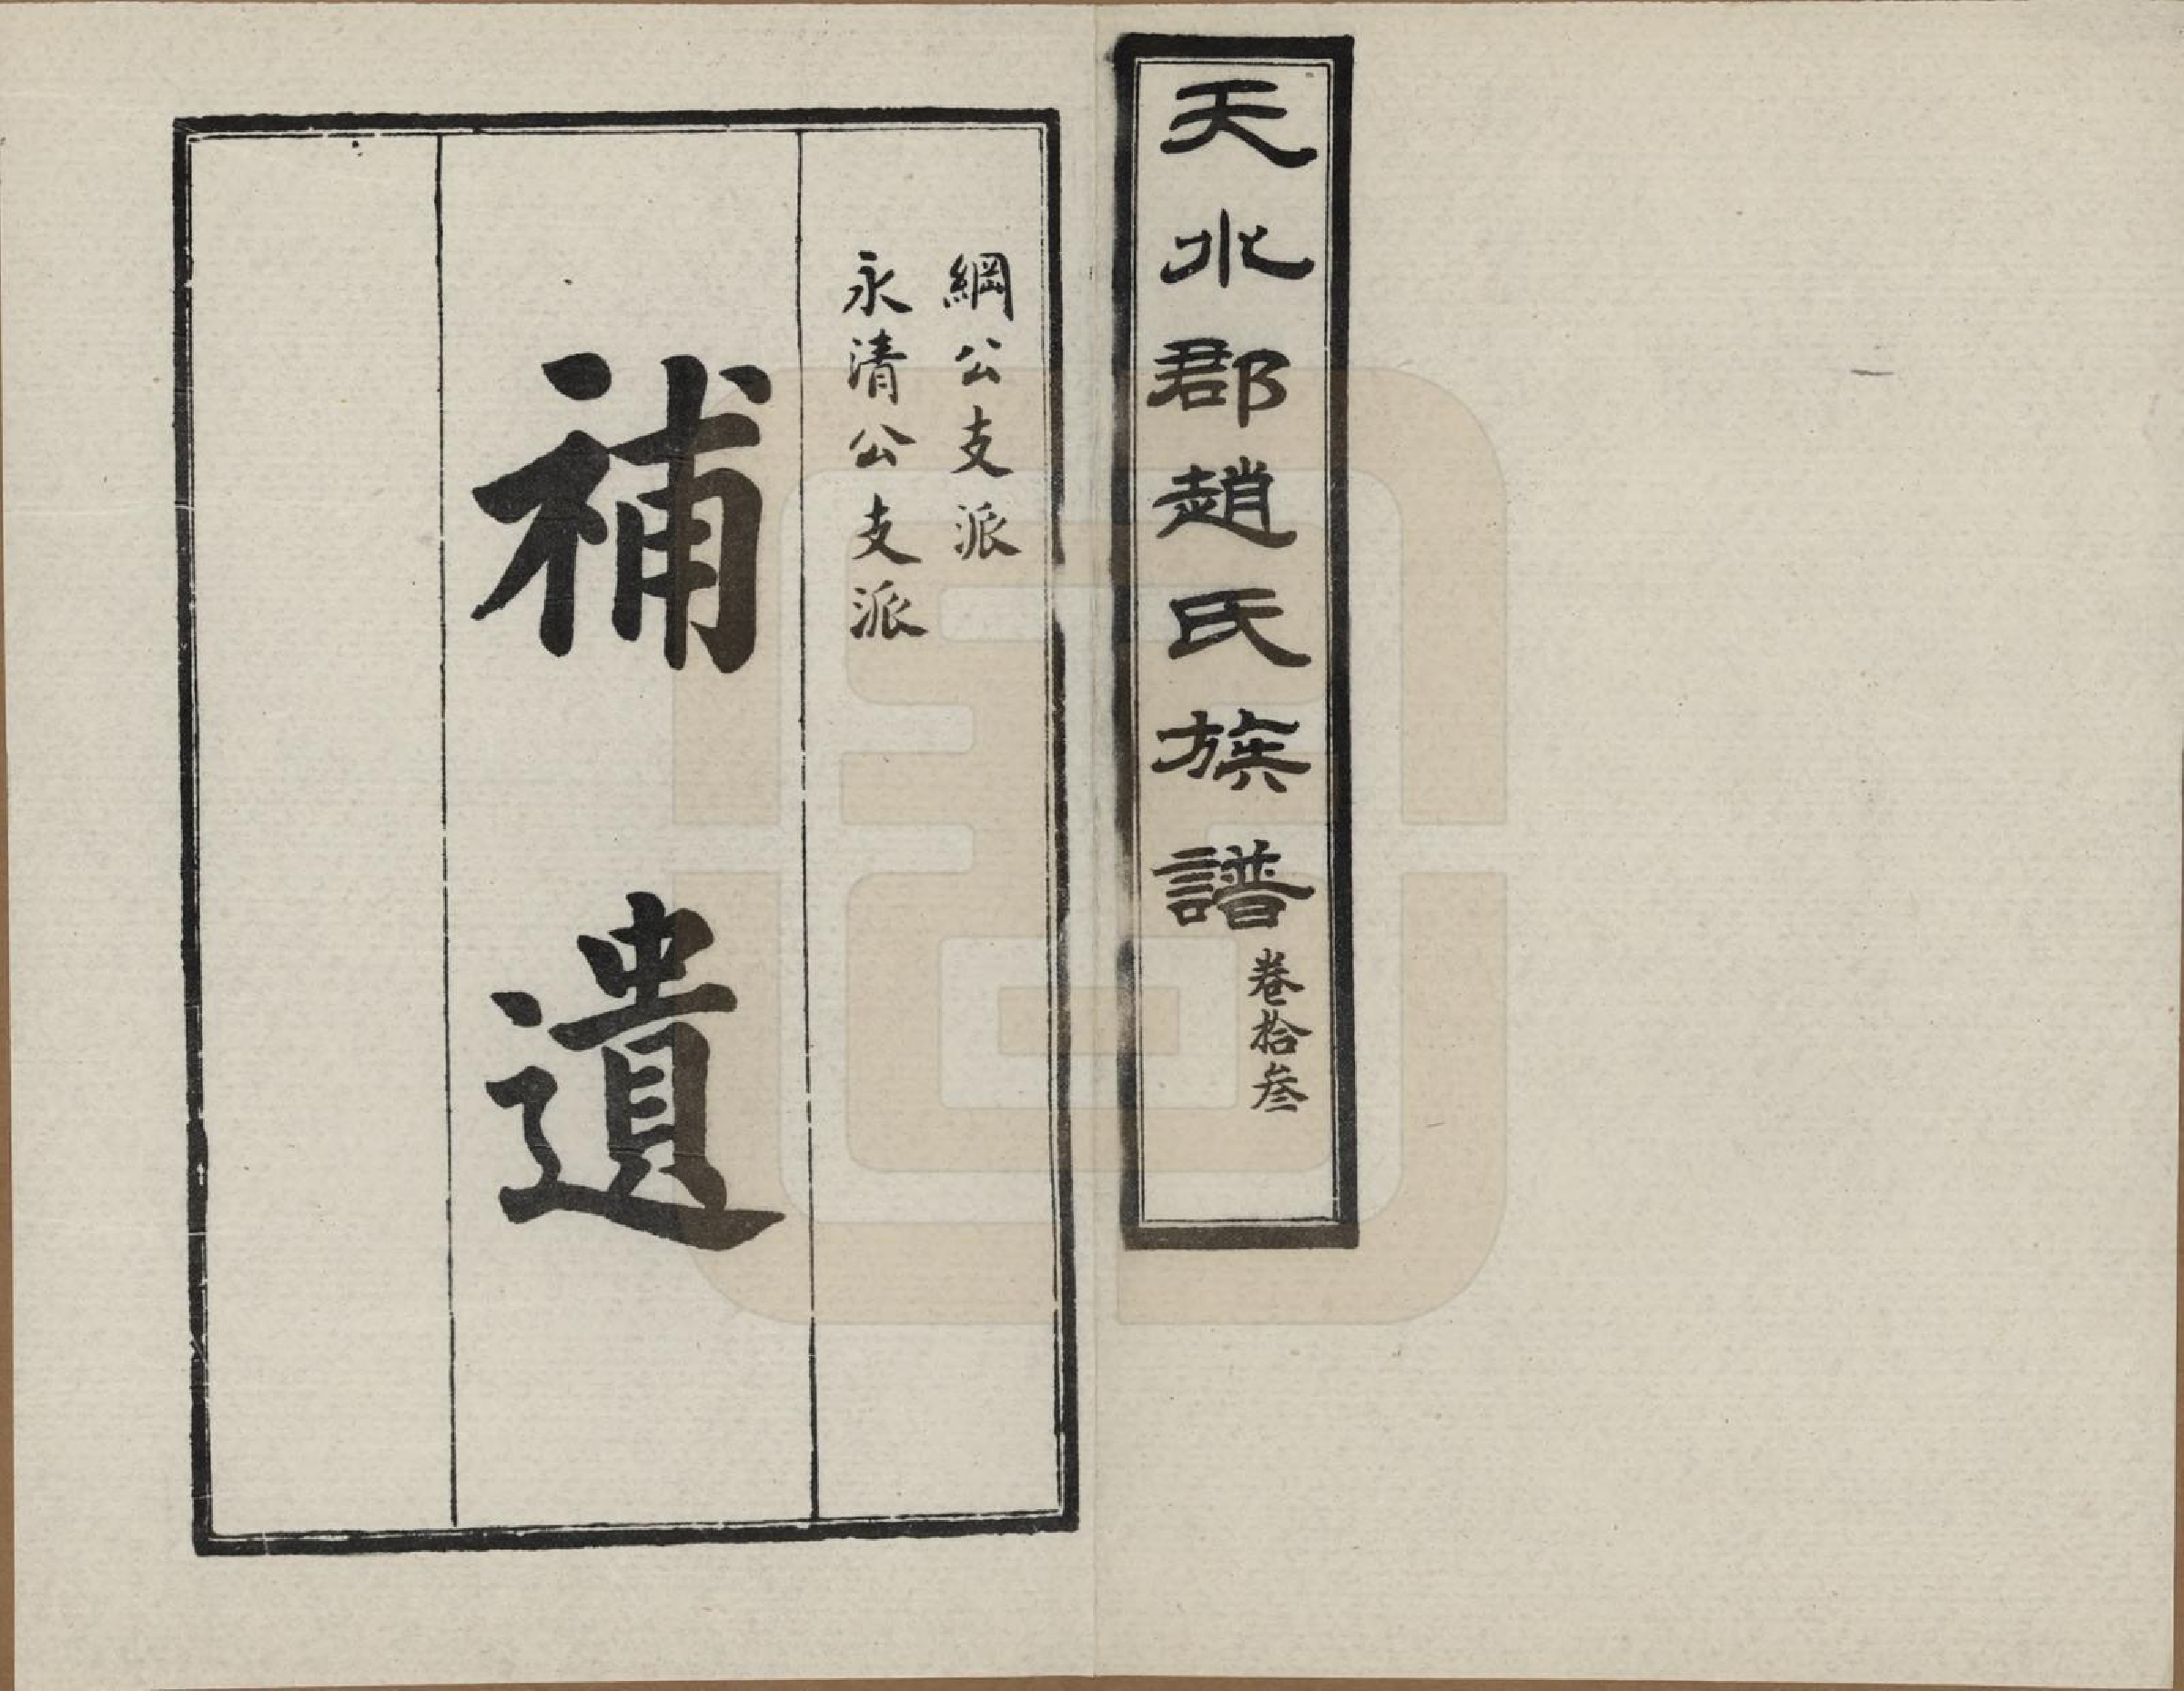 天水郡趙氏族譜
卷拾叁
綱公支派
永清公支派
補遺